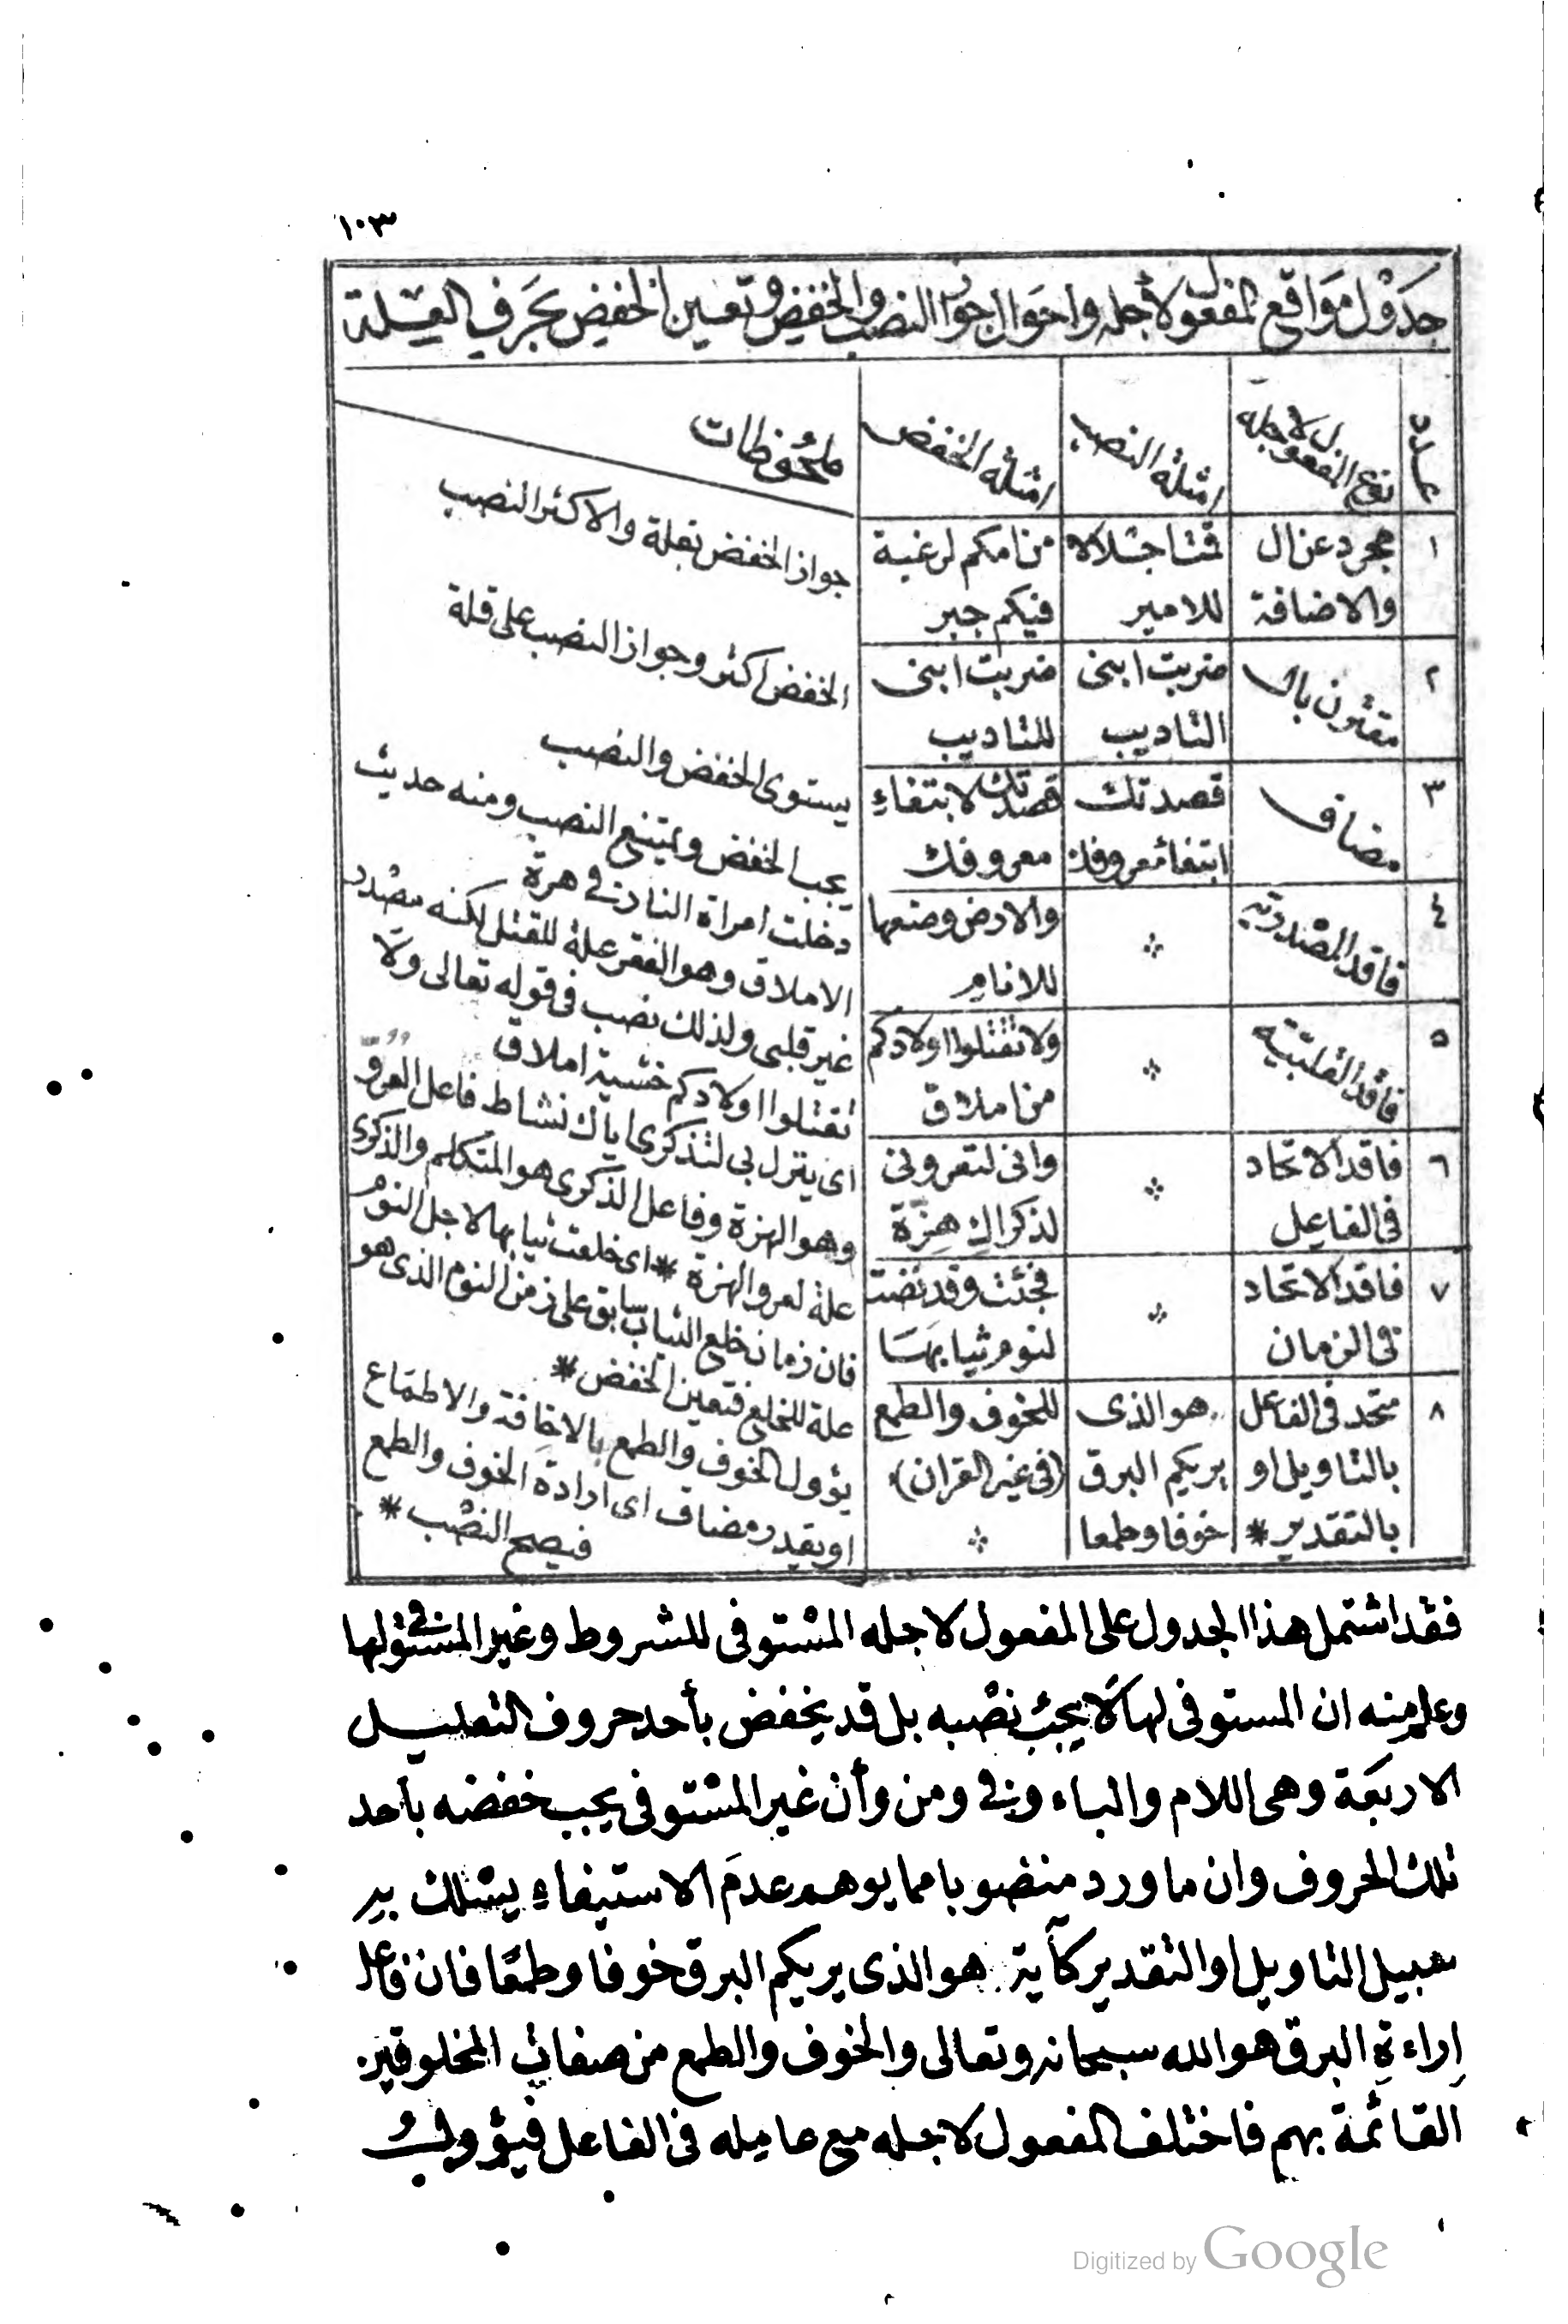 ١٠٣
جدول مواقع المفعول لأجله واحوال جواز النصب والخفض وتعيين الخفض بحرف العلة
عدد
نوع المفعول لاجله
امثلة النصب
امثلة الخفض
ملحوظات
١
مجرد عن ال
والاضافة
قمنا جلالا
للامير
من امكم لرغبة
فيكم جبر
جواز الخفض بقلة والاكثر النصب
٢
مقترن بال
ضربت ابنى
التاديب
ضربت ابنى
للتاديب
الخفض اكثر وجواز النصب على قلة
٣
مضاف
قصدتك
ابتغاء معروفك
قصدتك لابتغاء
معروفك
يستوى الخفض والنصب
٤
فاقد المصدرية
والارض وضعها
للانام
يجب الخفض ويمتنع النصب ومنه حديث
دخلت امراة النار فى هرة
٥
فاقد القلبية
ولا تقتلوا اولادكم
من املاق
الاملاق وهو الفقر علة للقتل لكنه مصدر
غير قلبى ولذلك نصب فى قوله تعالى ولا
تقتلوا اولادكم خشية املاق
٦
فاقد الاتحاد
فى الفاعل
وانى لتعرونى
لذكراك هزة
اى ينزل بى لتذكرى اياك نشاط فاعل العرو
وهو الهزة وفاعل الذكرى هو المتكلم والذكرى
علة لعرو الهزة * اى خلعت ثيابها لاجل النوم
٧
فاقد الاتحاد
فى الزمان
فجئت وقد نضت
لنوم ثيابها
فان زمان خلع الثياب سابق على زمن النوم الذى هو
علة للخلع فتعين الخفض *
٨
متحد فى الفاعل
بالتاويل او
بالتقدير *
هو الذى
يريكم البرق
خوفا وطمعا
للخوف والطمع
(فى غير القران)
يؤول الخوف والطمع بالاخافة والاطماع
او يقدر مضاف اى ارادة الخوف والطمع
فيصح النصب *
فقد اشتمل هذا الجدول على المفعول لاجله المستوفى للشروط وغير المستوفى لها
وعلم منه ان المستوفى لها لا يجب نصبه بل قد يخفض بأحد حروف التعليل
الاربعة وهى اللام والباء وفى ومن وأن غير المستوفى يجب خفضه بأحد
تلك الحروف وان ما ورد منصوبا مما يوهم عدم الاستيفاء يسلك به
سبيل التاويل او التقدير كآية هو الذى يريكم البرق خوفا وطمعا فان فاعل
إراءة البرق هو الله سبحانه وتعالى والخوف والطمع من صفات المخلوقين
القائمة بهم فاختلف المفعول لاجله مع عامله فى الفاعل فيؤول
Digitized by Google